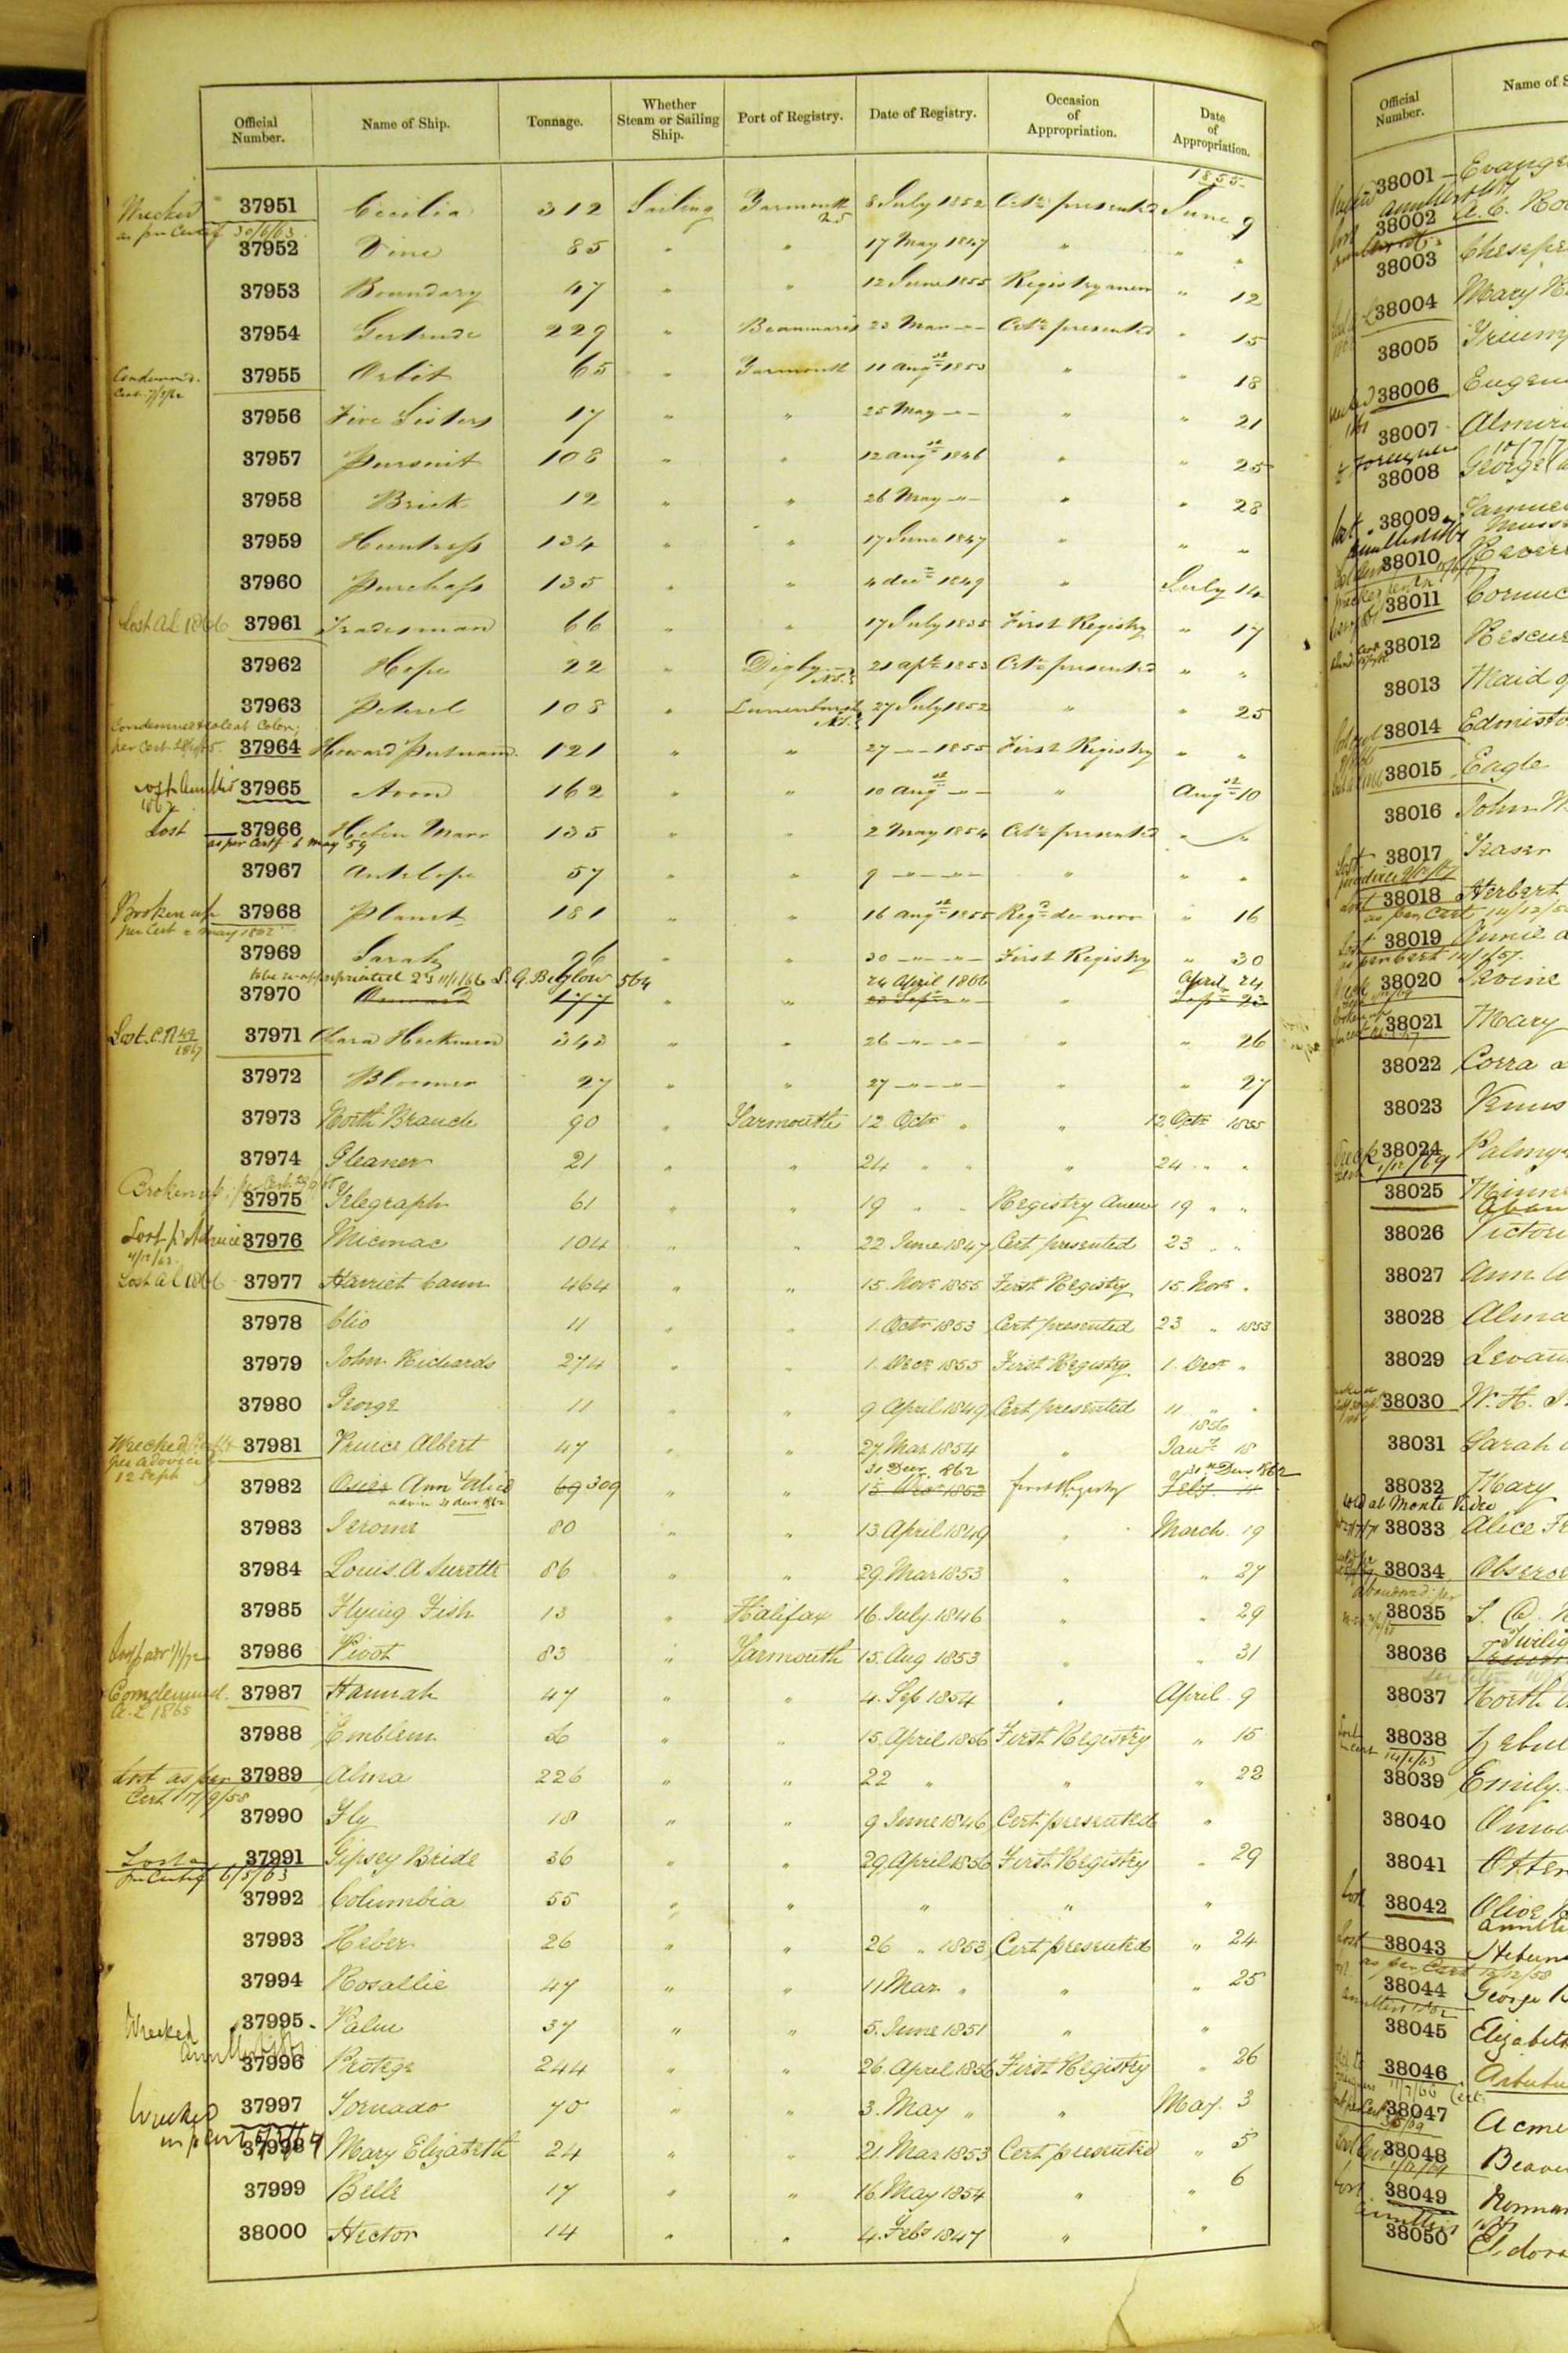 Official Number. Name of Ship. Tonnage. Whether Steam or Sailing Ship. Port of Registry. Date of Registry. Occasion of Appropriation. Date of Appropriation.
1855
Wrecked 37951 Cecilia 312 Sailing Yarmouth NS 8 July 1852 Certe presented June 9
as per Certif 30/6/63
37952 Vine 85 " " 17 May 1847 " " "
37953 Boundary 47 " " 12 June 1855 Registry anew " 12
37954 Gertrude 229 " Beaumaris 23 Mar -"- Certe presented " 15
Condemned. 37955 Orbit 65 " Yarmouth 11 Augst 1853 " " 18
37956 Five Sisters 17 " " 25 May -"- " " 21
37957 Pursuit 108 " " 12 Augst 1846 " " 25
37958 Brisk 12 " " 26 May -"- " " 28
37959 Huntress 134 " " 17 June 1847 " " "
37960 Purchass 135 " " 4 decr 1849 " July 14
Lost A.L 1866 37961 Tradesman 66 " " 17 July 1835 First Registry " 17
37962 Hope 22 " Digby N.S. 21 Apl 1853 Certe presented " "
37963 Petrel 108 " Lunenburg N.S. 27 July 1852 " " 25
Condemned & sold at Colon,
per Cert 37964 Howard Putnam. 121 " " 27 -"- 1855 First Registry " "
Lost Annulled 1862 37965 Avon 162 " " 10 Augst -"- " Augst 10
Lost 37966 Helen Marr 135 " " 2 May 1854 Certe presented " "
as per Certf 6 May 59
37967 Antelope 57 " " 9 -"- -"- " " "
Broken up 37968 Planet 181 " " 16 Augst 1855 Regd de novo " 16
per Cert 2 May 1862
37969 Sarah 96 " " 30 -"- -"- First Registry " 30
to be re-appropriated 23 11/1/66 S. G. Bigelow 564 24 April 1866 April 24
37970 177 " " 22 Sepr " " Sepr 23
Lost. 1867 37971 Clara Heckman 343 " " 26 -"- -"- " " 26
37972 Bloomer 27 " " 27 -"- -"- " " 27
37973 North Branch 90 " Yarmouth 12 Octr " " 12 Octr 1855
37974 Gleaner 21 " " 24 " " " 24 " "
Broken up, per Cert
37975 Telegraph 61 " " 19 " " Registry Anew 19 " "
Lost pr Advice 4/12/62 37976 Micmac 104 " " 22 June 1847 Cert presented 23 " "
Lost A L 1866 37977 Harriet Cann 464 " " 15. Novr 1855 First Registry 15. Novr "
37978 Clio 11 " " 1. Octr 1853 Cert presented 23 " 1853
37979 John Richards 274 " " 1. Decr 1855 First Registry 1. Decr "
37980 George 11 " 9 April 1849 Cert presented 11 " "
1856
Wrecked per advice 12 Sept 37981 Prince Albert 47 " " 27. Mar 1854 " Jany 18
31 Decr 1862 31st Decr 1862
37982 Osier Ann & Alice 69 309 " " 15 Decr 1853 first Registry Feby 11
advice 31 decr 1862
37983 Jerome 80 " " 13. April 1849 " March. 19
37984 Louis. A Surette 86 " " 29. Mar 1853 " " 27
37985 Flying Fish 13 " Halifax 16. July. 1846 " " 29
37986 Pivot 83 " Yarmouth 15. Aug 1853 " " 31
Comdemned. A.L 1865 37987 Hannah 47 " " 4. Sep 1854 " April. 9
37988 Emblem 56 " " 15. April 1856 First Registry " 15
Lost as per 37989 Alma 226 " " 22 " " " 22
Cert 17/9/58
37990 Fly 18 " " 9 June 1846 Cert presented "
Lost as 37991 Gipsey Bride 36 " " 29. April 1856 First Registry " 29
per Certif 6/5/63
37992 Columbia 55 " " " " "
37993 Heber 26 " " 26 " 1853 Cert presented " 24
37994 Rosallie 47 " " 11 Mar " " " 25
Wrecked 37995 Palm 37 " " 5. June 1851 " "
37996 Protege 244 " " 26. April 1856 First Registry " 26
Wrecked 37997 Tornado 70 " " 3. May " " May. 3
37998 Mary Elizabeth 24 " " 21. Mar 1853 Cert presented " 5
37999 Belle 17 " " 16. May 1854 " " 6
38000 Hector 14 " " 4. Feby 1847 " "
Official Number. Name of S
38001 Evange
38002 A. C. Ro
38003 Chesape
38004 Mary
38005 Trium
38006 Eugen
38007 Almir
to Foreigners
38008 George
38009 Samue
38010 Rever
38011 Cornuc
38012 Rescu
38013 Maid o
38014 Edmisto
38015 Eagle
38016 John M
Lost 38017 Fraser
38018 Herbert
as per Cert 14/12/5
38019 Annie
38020 Irvine
38021 Mary
38022 Corra
38023 Venus
38024 Palmy
38025 Minn
38026 Victori
38027 Ann
38028 Alma
38029 Levan
38030 W. H.
38031 Sarah
38032 Mary
Sold at Monte Video
38033 Alice F
38034 Observ
Abandoned per
38035
38036 Twilig
38037 North
38038 Zebul
38039 Emily
38040
38041 Otter
Lost 38042 Olive
Lost 38043 Hebun
as per Cert 12/12/58
38044 George
38045 Elizabeth
38046 Arbutu
38047 Acme
38048 Beave
Lost 38049 Norman
38050 Eldora